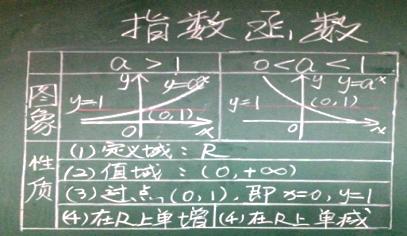 指数函数
a > 1
0 < a < 1
图象
y
y=aˣ
y=1
(0,1)
0
x
y
y=aˣ
y=1
(0,1)
0
x
性质
(1) 定义域：R
(2) 值域：(0,+∞)
(3) 过点(0,1),即 x=0, y=1
(4)在R上单增
(4)在R上单减